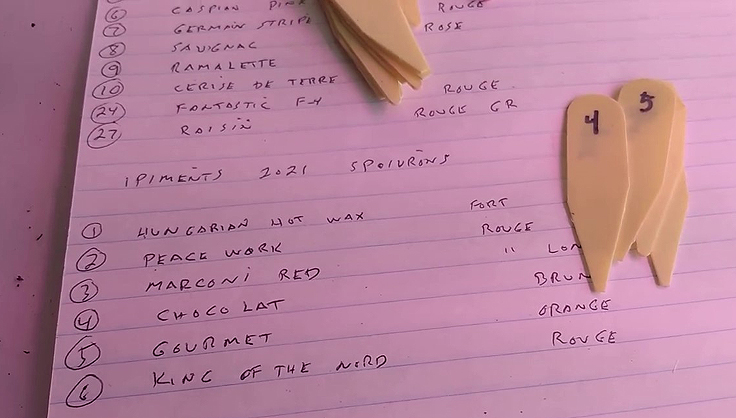 6 CASPIAN PINK ROUGE
7 GERMAIN STRIPE ROSE
8 SAVIGNAC
9 RAMALETTE
10 CERISE DE TERRE ROUGE
24 FANTASTIC F-4 ROUGE GR
27 RAISIN
IPIMENTS 2021 SPOIVRONS
1 HUNGARIAN HOT WAX FORT
2 PEACE WORK ROUGE
3 MARCONI RED " LON
4 CHOCOLAT BRUN
5 GOURMET ORANGE
6 KING OF THE NORD ROUGE
4
5